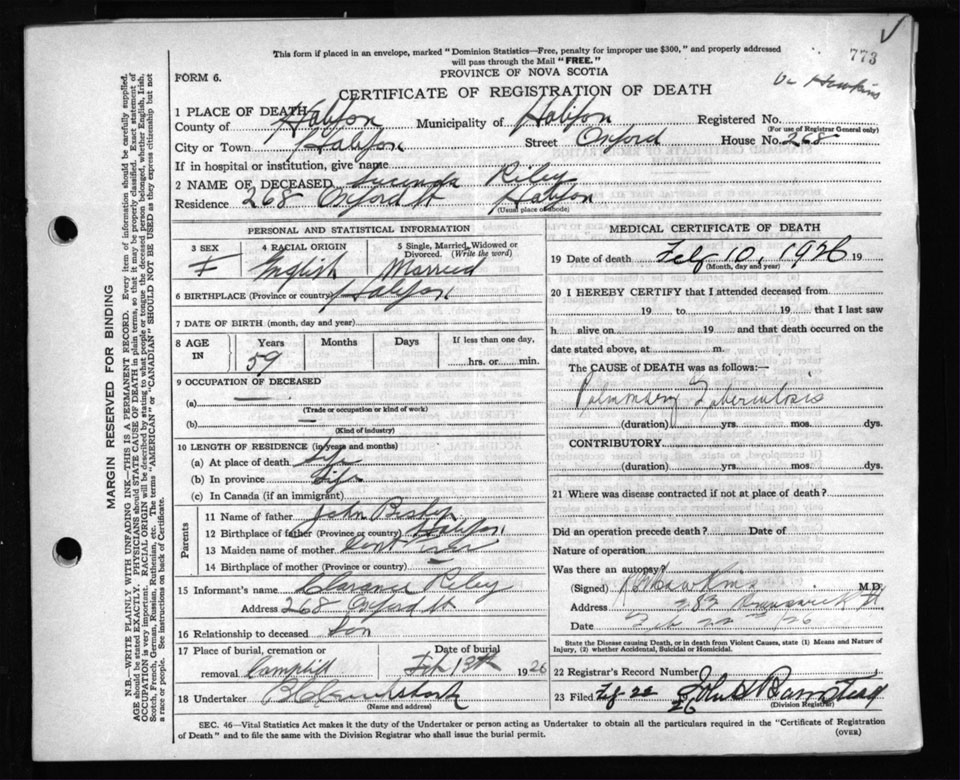 This form if placed in an envelope, marked "Dominion Statistics—Free, penalty for improper use $300," and properly addressed
will pass through the Mail "FREE."
773
FORM 6.
PROVINCE OF NOVA SCOTIA
CERTIFICATE OF REGISTRATION OF DEATH
Dr Hawkins
1 PLACE OF DEATH
County of Halifax Municipality of Halifax Registered No.
(For use of Registrar General only)
City or Town Halifax Street Oxford House No. 268
If in hospital or institution, give name
2 NAME OF DECEASED Lucinda Riley
Residence 268 Oxford St Halifax
(Usual place of abode)
PERSONAL AND STATISTICAL INFORMATION
3 SEX 4 RACIAL ORIGIN 5 Single, Married, Widowed or Divorced. (Write the word)
F English Married
6 BIRTHPLACE (Province or country) Halifax
7 DATE OF BIRTH (month, day and year)
8 AGE IN Years Months Days If less than one day,
59 hrs. or min.
9 OCCUPATION OF DECEASED
(a) —
(Trade or occupation or kind of work)
(b) —
(Kind of industry)
10 LENGTH OF RESIDENCE (in years and months)
(a) At place of death Life
(b) In province Life
(c) In Canada (if an immigrant)
Parents
11 Name of father John Bishop
12 Birthplace of father (Province or country) Halifax
13 Maiden name of mother
14 Birthplace of mother (Province or country)
15 Informant's name Clarence Riley
Address 268 Oxford St
16 Relationship to deceased Son
17 Place of burial, cremation or Date of burial
removal Camphill Feb 13th 1926
18 Undertaker
(Name and address)
MEDICAL CERTIFICATE OF DEATH
19 Date of death Feb 10, 1926 19
(Month, day and year)
20 I HEREBY CERTIFY that I attended deceased from
19 to 19 that I last saw
h alive on 19 and that death occurred on
date stated above, at m.
The CAUSE OF DEATH was as follows:—
Pulmonary Tuberculosis
(duration) yrs. mos. dys.
CONTRIBUTORY
(duration) yrs. mos. dys.
21 Where was disease contracted if not at place of death?
Did an operation precede death? Date of
Nature of operation
Was there an autopsy?
(Signed) Hawkins M.D.
Address 283 Brunswick St
Date Feb 22nd /26
State the Disease causing Death, or in death from Violent Causes, state (1) Means and Nature of
Injury, (2) whether Accidental, Suicidal or Homicidal.
22 Registrar's Record Number
23 Filed Feb 22 26 John
(Division Registrar)
SEC. 46—Vital Statistics Act makes it the duty of the Undertaker or person acting as Undertaker to obtain all the particulars required in the "Certificate of Registration
of Death" and to file the same with the Division Registrar who shall issue the burial permit. (OVER)
MARGIN RESERVED FOR BINDING
N.B.—WRITE PLAINLY WITH UNFADING INK—THIS IS A PERMANENT RECORD. Every item of information should be carefully supplied.
AGE should be stated EXACTLY. PHYSICIANS should STATE CAUSE OF DEATH in plain terms, so that it may be properly classified. Exact statement of
OCCUPATION is very important. RACIAL ORIGIN will be described by stating to what people or tongue the deceased person belonged, whether English, Irish,
Scotch, French, German, Russian, Ruthenian, etc. The terms "AMERICAN" or "CANADIAN" SHOULD NOT BE USED as they express citizenship but not
a race or people. See instructions on back of Certificate.